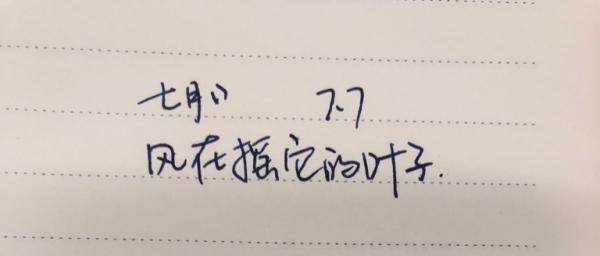 七月〃 7.7
风在摇它的叶子.